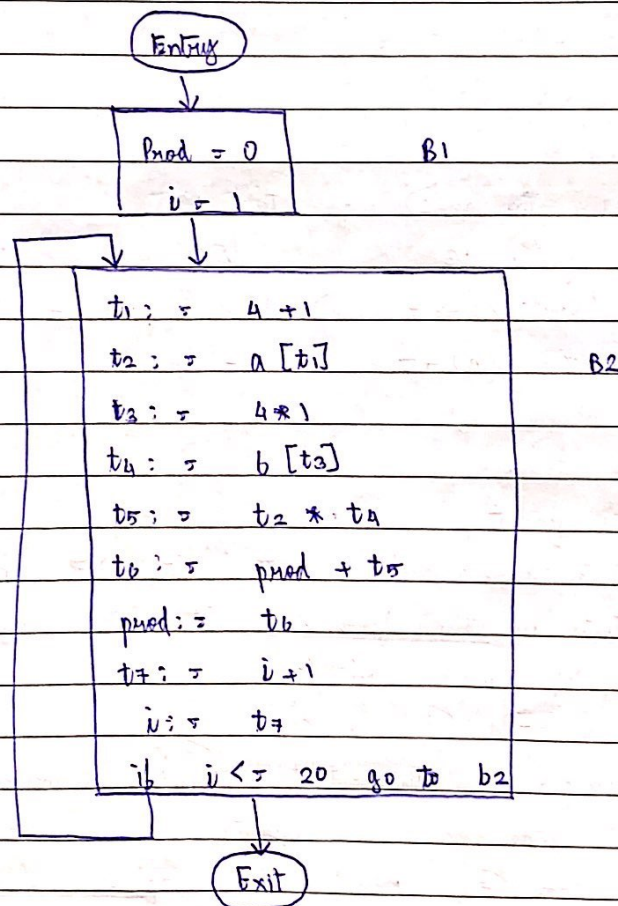 Entry
Prod = 0
B1
i = 1
t1 := 4 + 1
t2 := a [t1]
B2
t3 := 4 * 1
t4 := b [t3]
t5 := t2 * t4
t6 := prod + t5
prod := t6
t7 := i + 1
i := t7
if i <= 20 go to b2
Exit